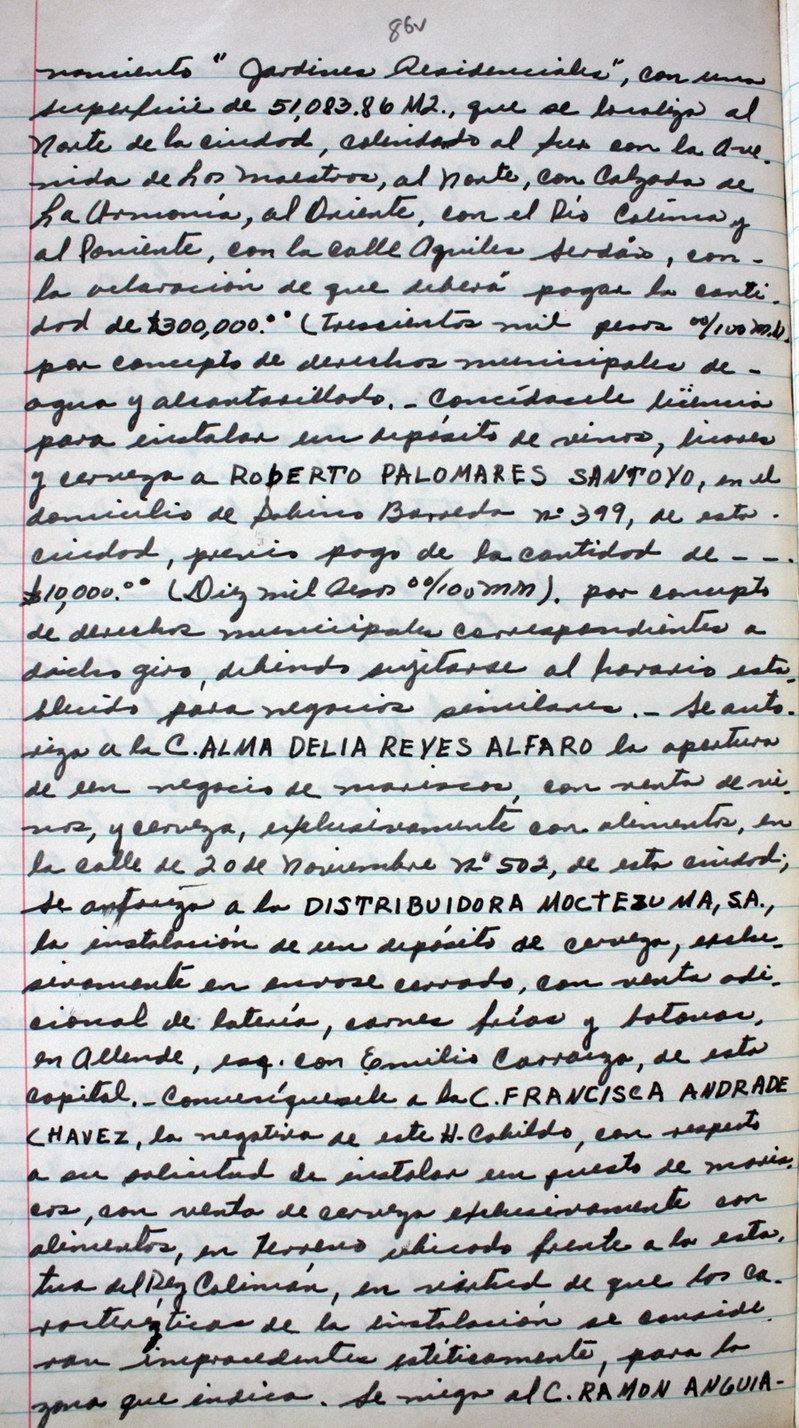 86v
namiento " Jardines Residenciales", con una
superficie de 51,083.86 M2., que se localiza al
Norte de la ciudad, colindado al sur con la Ave-
nida de Los Maestros, al Norte, con Calzada de
La Armonía, al Oriente, con el Río Colima y
al Poniente, con la calle Aquiles Serdán, con -
la aclaración de que deberá pagar la canti-
dad de $300,000.°° (Trescientos mil pesos °°/100 M.N.
por concepto de derechos municipales de -
agua y alcantarillado. - Concédasele licencia
para instalar un depósito de vinos, licores
y cerveza a ROBERTO PALOMARES SANTOYO, en el
domicilio de Gabino Barreda n° 399, de esta -
ciudad, previo pago de la cantidad de - - -
$10,000.°° (Diez mil Pesos °°/100 MN). por concepto
de derechos municipales correspondientes a
dicho giro, debiendo sujetarse al horario esta-
blecido para negocios similares. - Se auto-
riza a la C. ALMA DELIA REYES ALFARO la apertura
de un negocio de mariscos, con venta de vi-
nos, y cerveza, exclusivamente con alimentos, en
la calle de 20 de Noviembre n° 502, de esta ciudad;
Se autoriza a la DISTRIBUIDORA MOCTEZUMA, S.A.,
la instalación de un depósito de cerveza, exclu-
sivamente en envase cerrado, con venta adi-
cional de latería, carnes frías y botanas,
en Allende, esq. con Emilio Carranza, de esta
capital. - Comuníquesele a la C. FRANCISCA ANDRADE
CHAVEZ, la negativa de este H. Cabildo, con respecto
a su solicitud de instalar un puesto de maris-
cos, con venta de cerveza exclusivamente con
alimentos, en terreno ubicado frente a la esta-
tua del Rey Colimán, en virtud de que las ca-
racterísticas de la instalación se conside
ran improcedentes estéticamente, para la
zona que indica. Se niega al C. RAMON ANGUIA-